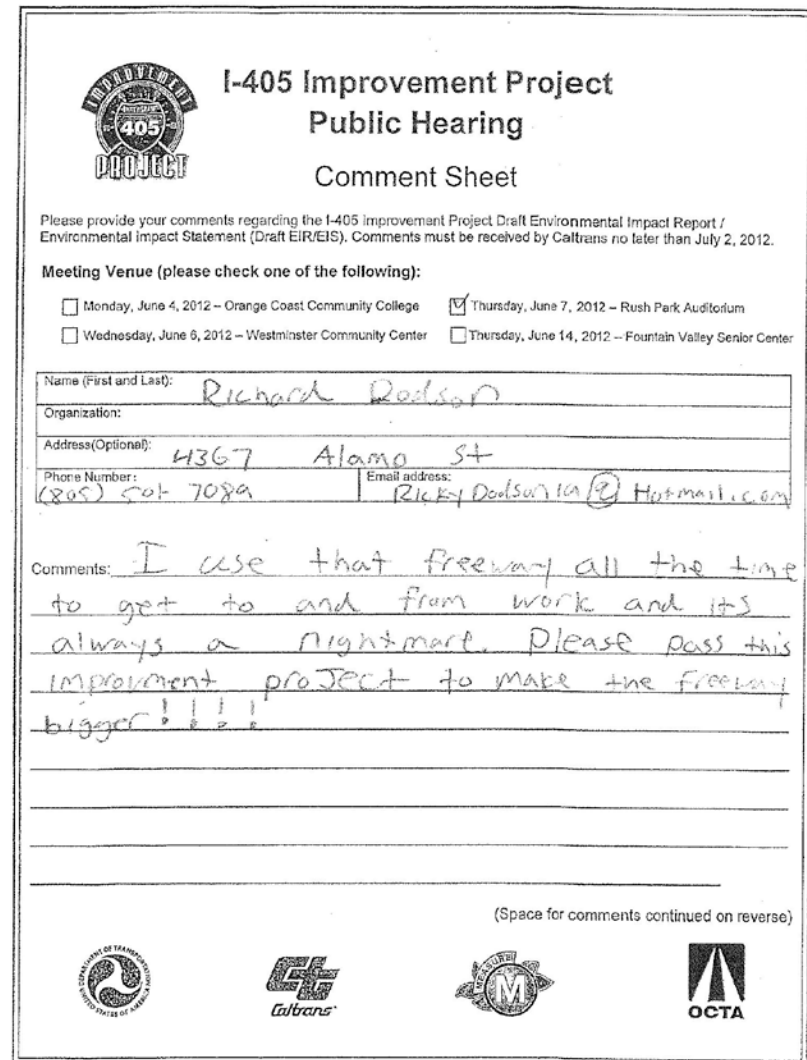 IMPROVEMENT
405
PROJECT
I-405 Improvement Project
Public Hearing
Comment Sheet
Please provide your comments regarding the I-405 Improvement Project Draft Environmental Impact Report /
Environmental Impact Statement (Draft EIR/EIS). Comments must be received by Caltrans no later than July 2, 2012.
Meeting Venue (please check one of the following):
Monday, June 4, 2012 – Orange Coast Community College
Thursday, June 7, 2012 – Rush Park Auditorium
Wednesday, June 6, 2012 – Westminster Community Center
Thursday, June 14, 2012 – Fountain Valley Senior Center
Name (First and Last): Richard Dodson
Organization:
Address(Optional): 4367 Alamo St
Phone Number: (805) 7089
Email address: Hotmail.com
Comments: I use that freeway all the time
to get to and from work and its
always a nightmare. Please pass this
improvment project to make the freeway
bigger!!!!
(Space for comments continued on reverse)
DEPARTMENT OF TRANSPORTATION
UNITED STATES OF AMERICA
Caltrans
MEASURE
M
OCTA